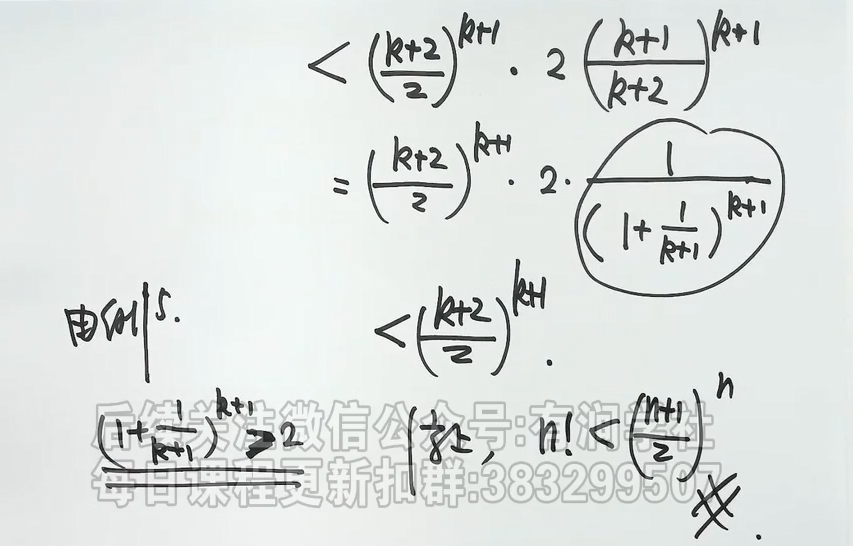 < (k+2/2)^k+1 · 2 (k+1/k+2)^k+1
= (k+2/2)^k+1 · 2 · 1/(1+1/k+1)^k+1
由例5.
< (k+2/2)^k+1.
(1+1/k+1)^k+1 > 2
综上, n! < (n+1/2)^n
后续关注微信公众号:有润学社
每日课程更新扣群:383299507